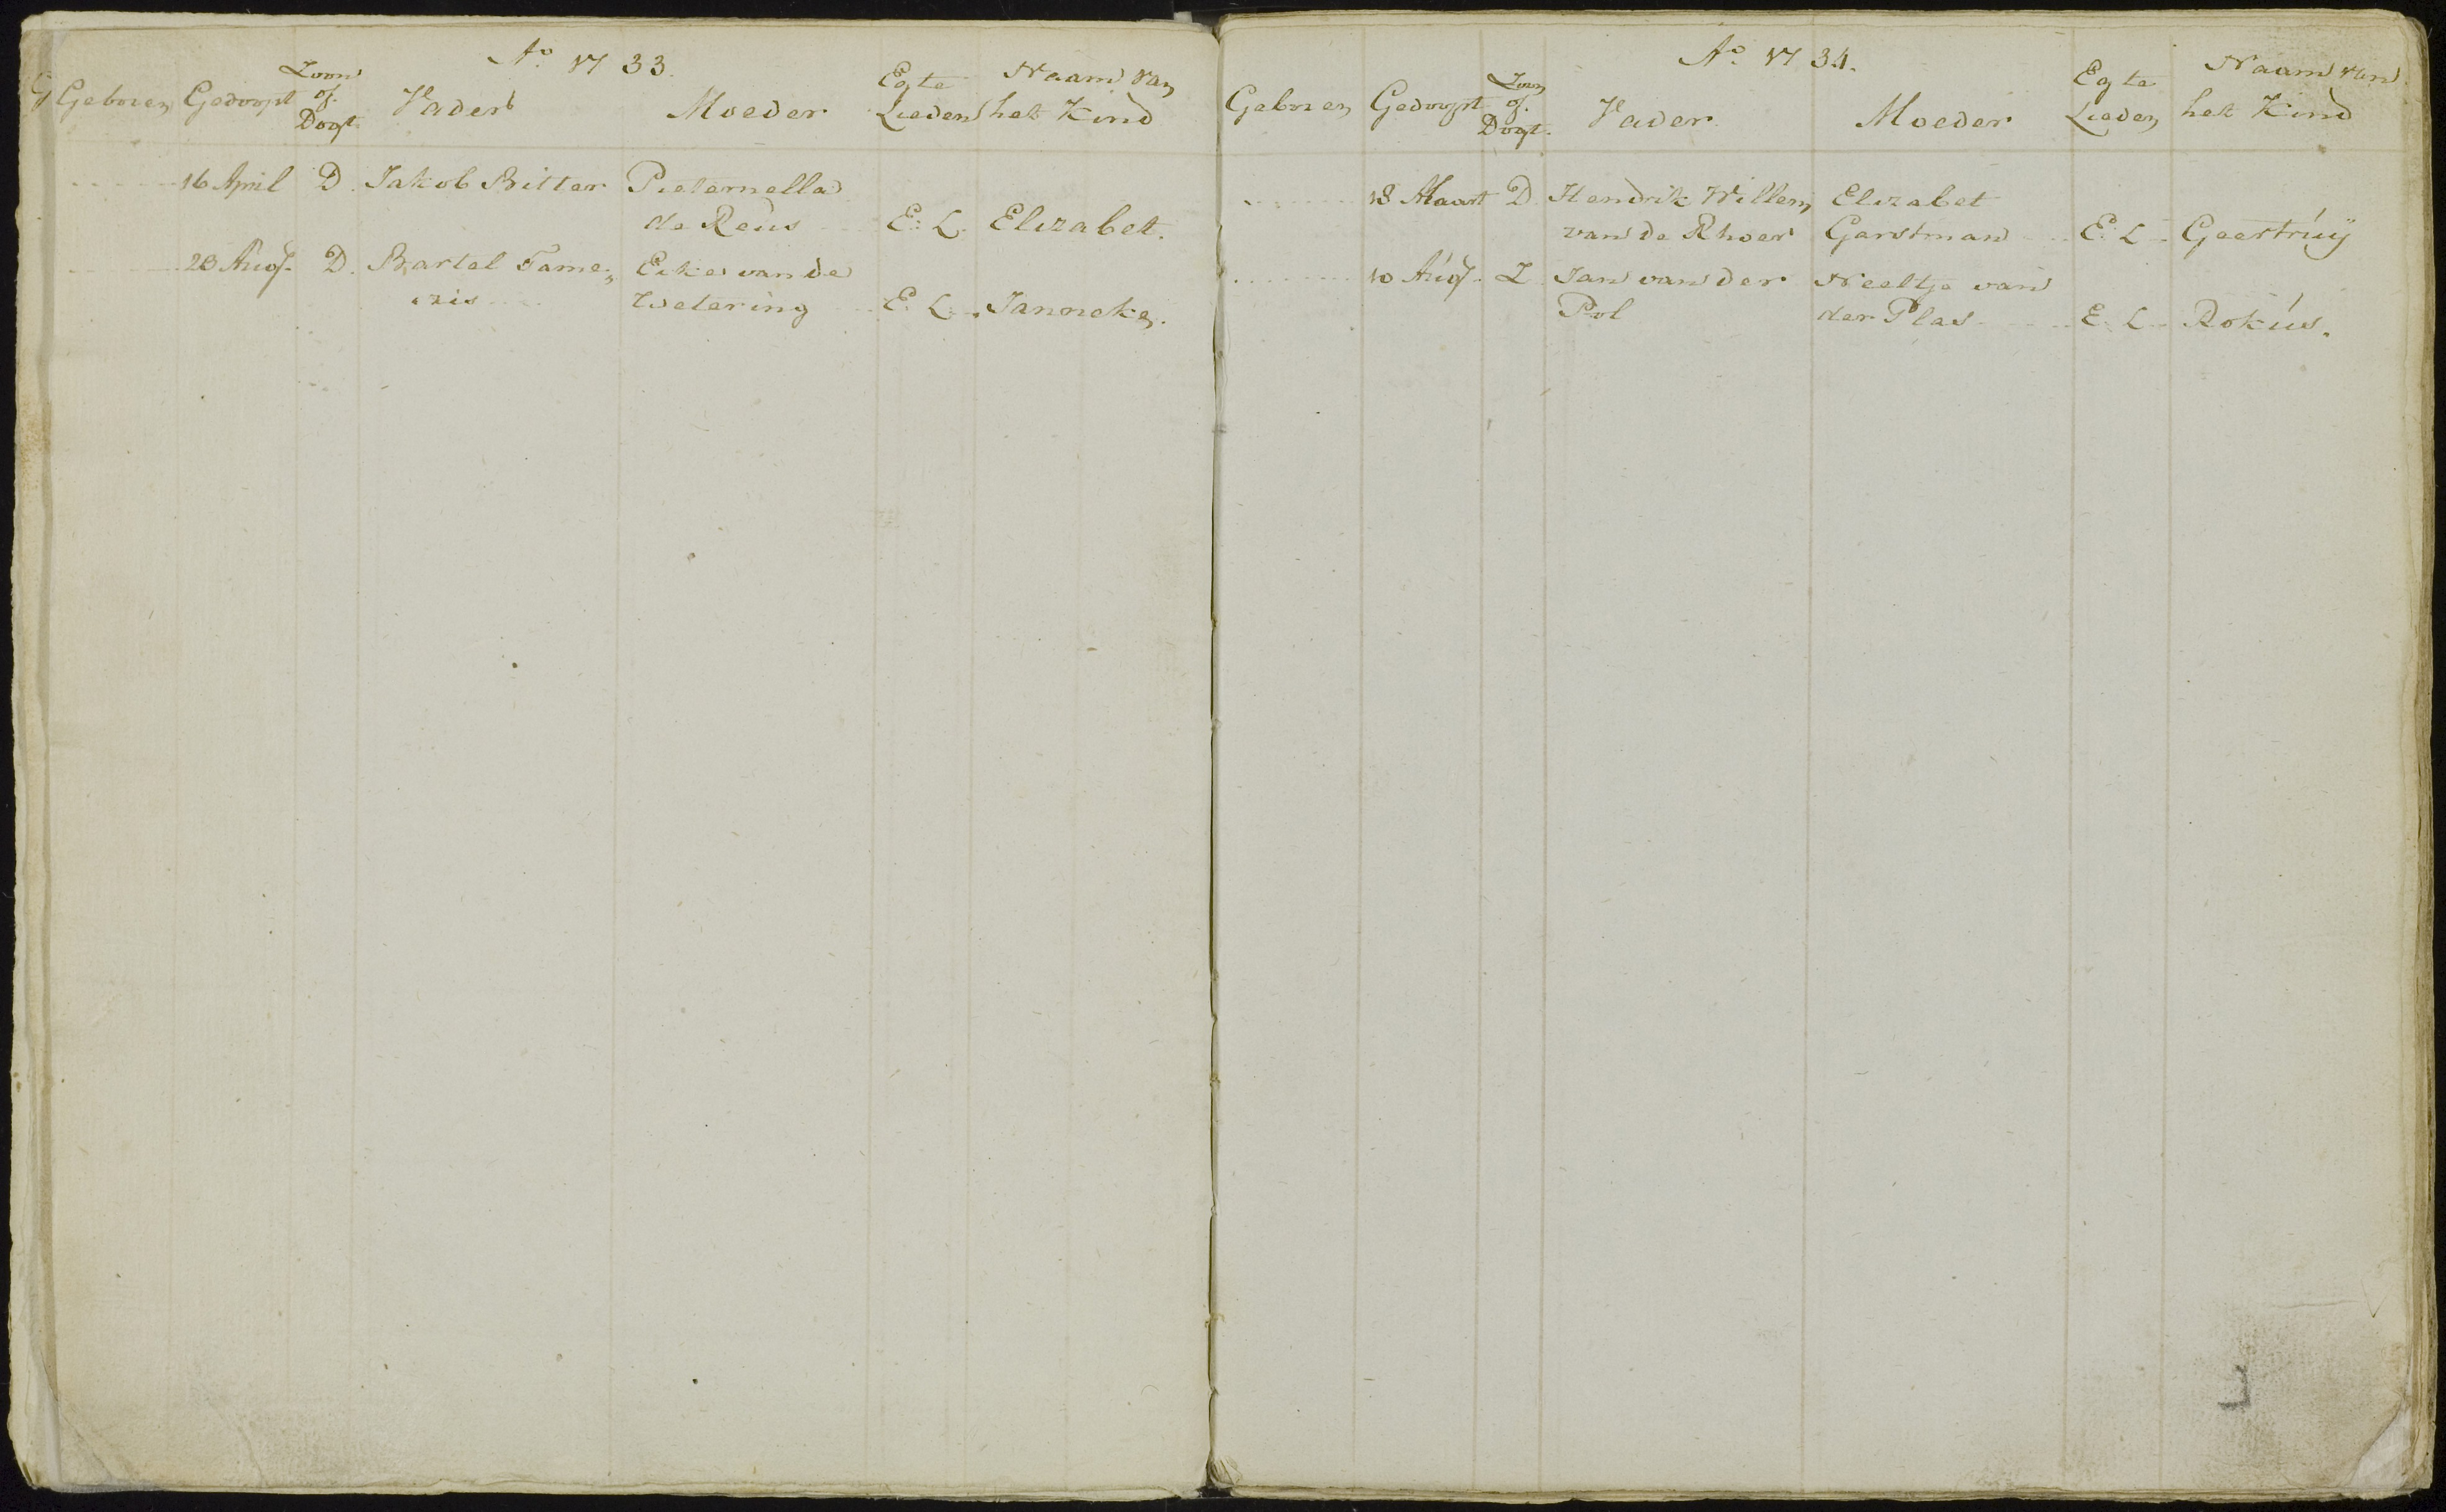 Ao 1733.
Geboren Gedoopt Zoon of. Dogt. Vader Moeder Egte Lieden Naam van het Kind
16 April D. Jakob Bitter Pieternella
de Reus E: L. Elizabet.
28 Aug. D. Bartel Tame„ Eike van de
zis Wetering E: L. Janneke.
Ao 1734.
Geboren Gedoopt Zoon of. Dogt. Vader Moeder Egte Lieden Naam van het Kind
18 Maart D Hendrik Willem Elizabet
van de Rhoer Garstman E: L. Geertruÿ
10 Aug. Z Jan van der Neeltje van
Pol der Plas E. L. Rokus.